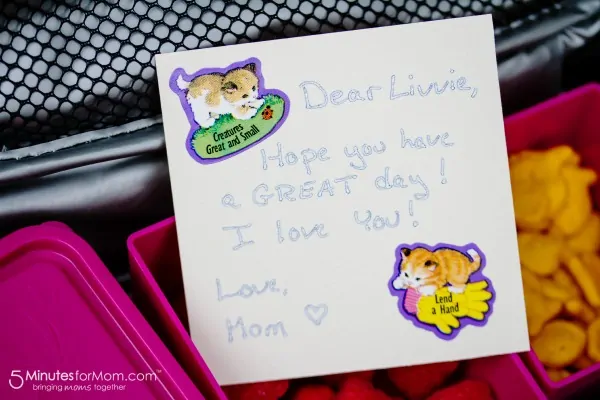 Dear Livvie,
Creatures
Great and Small
Hope you have
a GREAT day!
I love you!
Love,
Mom ♡
Lend
a Hand
5 MinutesforMom.com™
bringing moms together